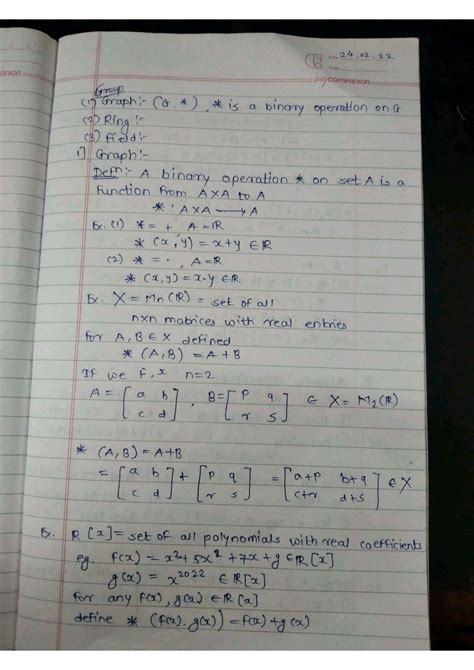 Date 24.02.22
Page
mycompanion
Group
(1) Graph:- (G, *), * is a binary operation on G
(2) Ring:-
(3) Field:-
1] Graph:-
Defn:- A binary operation * on set A is a
function from A×A to A
* : A×A ⟶ A
Ex. (1) * = + A = ℝ
* (x, y) = x+y ∈ ℝ
(2) * = ·, A = ℝ
* (x, y) = x·y ∈ ℝ
Ex. X = Mn(ℝ) = set of all
n×n matrices with real entries
for A, B ∈ X defined
* (A, B) = A + B
If we fix n=2
A = [a b; c d], B = [p q; r s] ∈ X = M2(ℝ)
* (A, B) = A+B
= [a b; c d] + [p q; r s] = [a+p b+q; c+r d+s] ∈ X
Ex. R[x] = set of all polynomials with real coefficients
eg. f(x) = x³ + 5x² + 7x + g ∈ ℝ[x]
g(x) = x²⁰²² ∈ ℝ[x]
for any f(x), g(x) ∈ ℝ[x]
define * (f(x), g(x)) = f(x) + g(x)